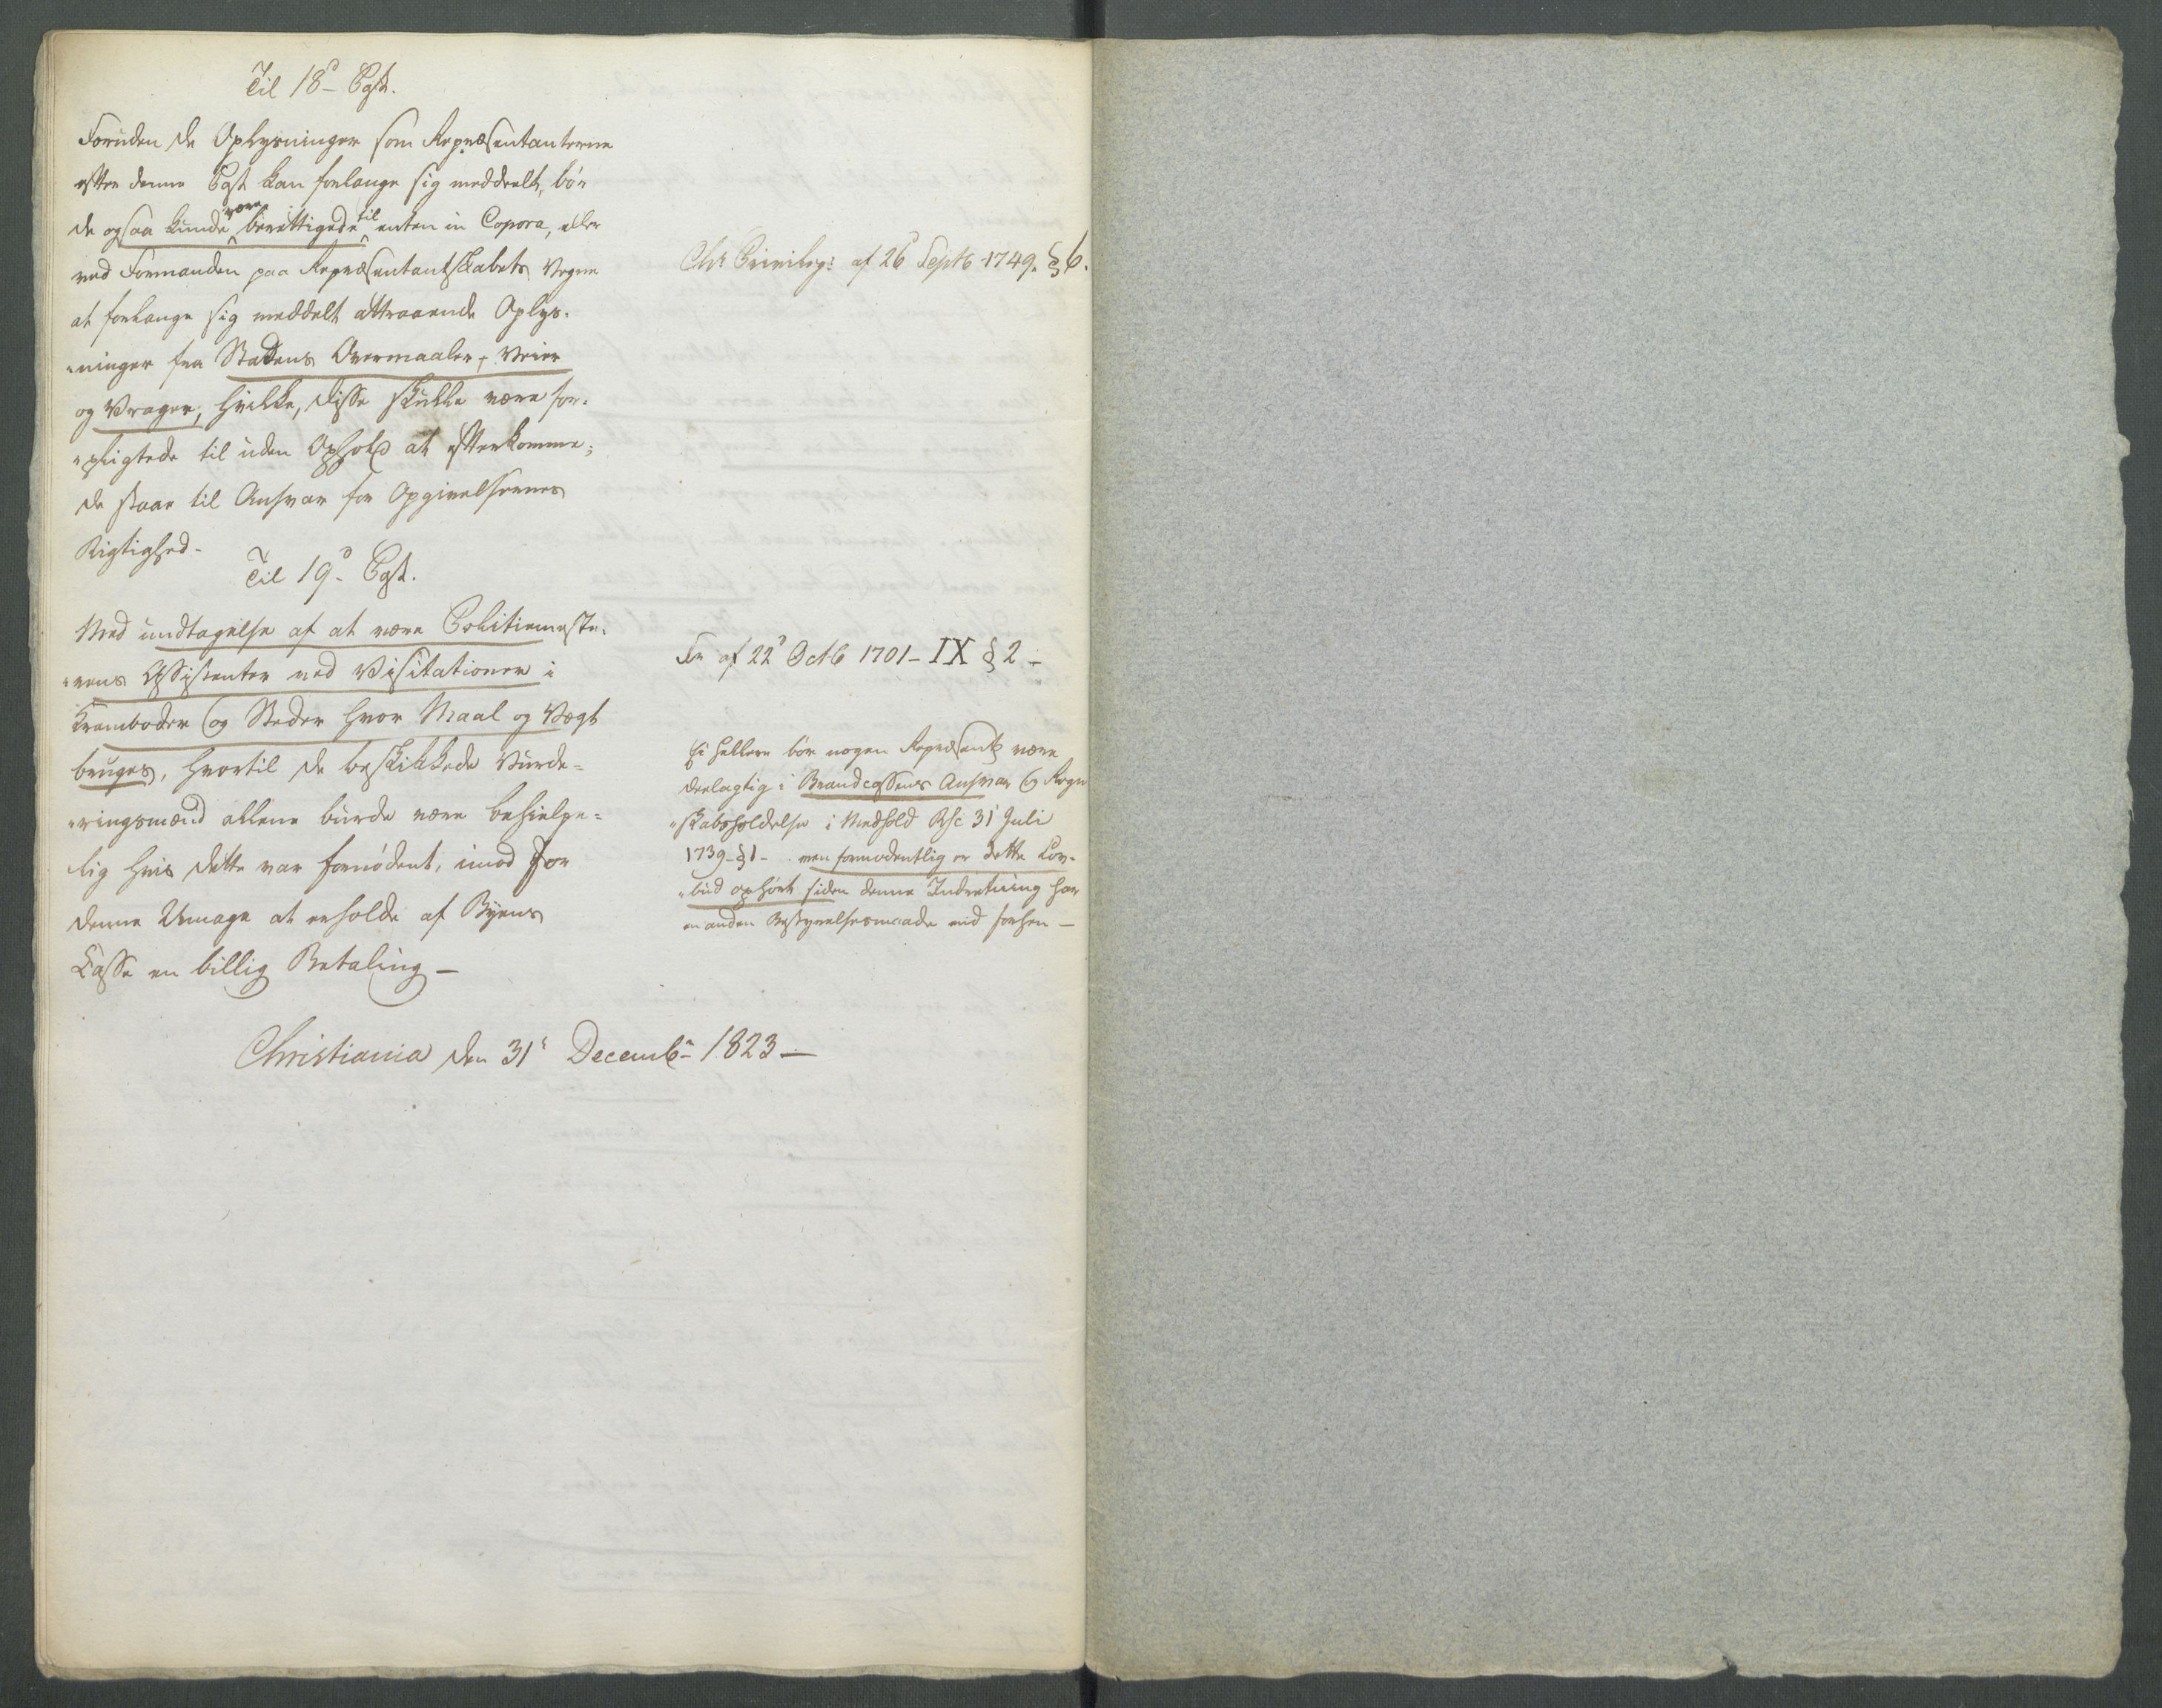 Til 18d Pgst.
Foruden de Oplysninger som Repræsentanterne
efter denne Pgst kan forlange sig meddeelt, bør
de ogsaa kunde være berettigede til enten in Copora, eller
ved Formanden paa Repræsentantskabets Vegne
at forlange sig meddelt attraaende Oplys-
ninger fra Stadens Overmaaler, Veier
og Vrager, hvilke, disse skulle være for-
pligtede til uden Ophold at efterkomme;
de staar til Ansvar for Opgivelsernes
Rigtighed-
Til 19d Pgst.
Med undtagelse af at være Politiemeste-
rens Assistenter ved Visitationer i
Kramboder og Steder hvor Maal og Vægt
bruges, hvortil de beskikkede Vurde-
ringsmænd allene burde være behielpe-
lig hvis dette var fornødent, imod for
denne Umage at erholde af Byens
Casse en billig Betaling-
Christiania den 31t Decembr 1823-
Chr. Privileg: af 26d Septb 1749. § 6.
Fr af 22d Octb 1701- IX § 2-
Ei heller bør nogen Repræsent være
deelagtig i Brandcassens Ansvar og Regn
skabsholdelse i Medhold Rsc 31 Juli
1739- § 1- men formodentlig er dette Lov-
bud ophørt siden denne Indretning har
en anden Bestyrelsesmaade end forhen-